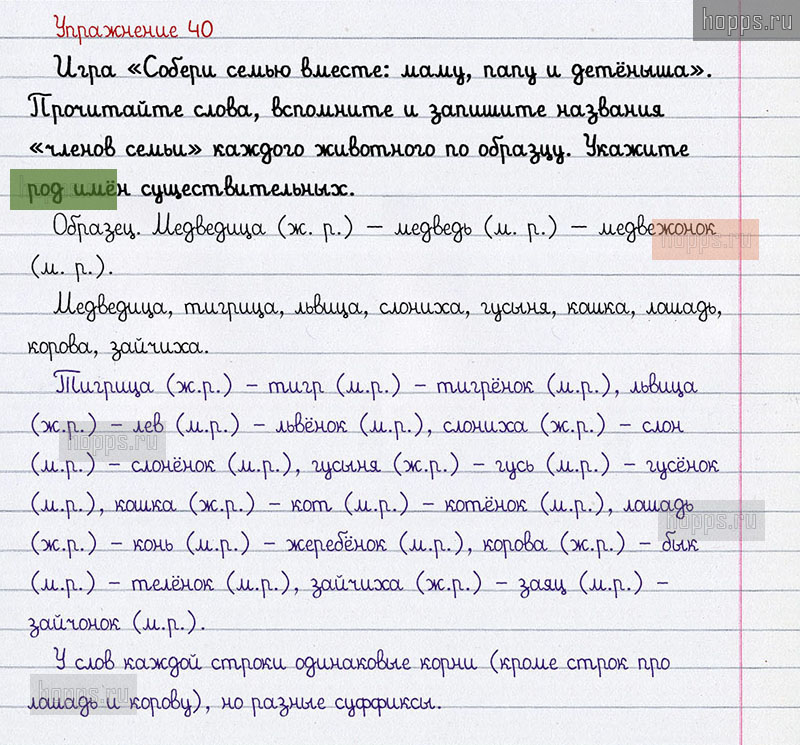 hopps.ru
Упражнение 40
Игра «Собери семью вместе: маму, папу и детёныша».
Прочитайте слова, вспомните и запишите названия
«членов семьи» каждого животного по образцу. Укажите
род имён существительных.
Образец. Медведица (ж. р.) – медведь (м. р.) – медвежонок
hopps.ru
(м. р.).
Медведица, тигрица, львица, слониха, гусыня, кошка, лошадь,
корова, зайчиха.
Тигрица (ж.р.) – тигр (м.р.) – тигрёнок (м.р.), львица
(ж.р.) – лев (м.р.) – львёнок (м.р.), слониха (ж.р.) – слон
hopps.ru
(м.р.) – слонёнок (м.р.), гусыня (ж.р.) – гусь (м.р.) – гусёнок
(м.р.), кошка (ж.р.) – кот (м.р.) – котёнок (м.р.), лошадь
hopps.ru
(ж.р.) – конь (м.р.) – жеребёнок (м.р.), корова (ж.р.) – бык
(м.р.) – телёнок (м.р.), зайчиха (ж.р.) – заяц (м.р.) –
зайчонок (м.р.).
У слов каждой строки одинаковые корни (кроме строк про
hopps.ru
лошадь и корову), но разные суффиксы.